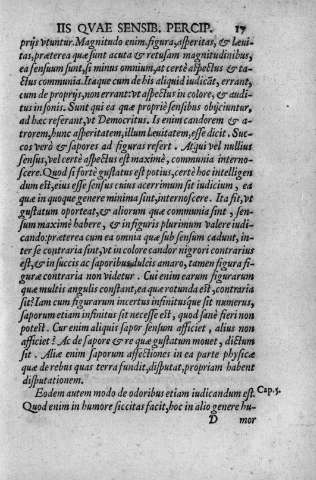 IIS QVAE SENSIB. PERCIP. 17
prijs vtuntur. Magnitudo enim, figura, asperitas, & læni-
tas, præterea quæ sunt acuta & retusam magnitudinibus,
ea sensuum sunt, si minus omnium, at certè aspectus & ta-
ctus communia. Itaque cum de his aliquid iudicāt, errant,
cum de proprijs, non errant: vt aspectus in colore, & audi-
tus in sonis. Sunt qui ea quæ propriè sensibus obijciuntur,
ad hæc referant, vt Democritus. Is enim candorem & a-
trorem, hunc asperitatem, illum læuitatem, esse dicit. Suc-
cos verò & sapores ad figuras refert. Atqui vel nullius
sensus, vel certè aspectus est maximè, communia interno-
scere. Quod si fortè gustatus est potius, certè hoc intelligen
dum est, eius esse sensus cuius acerrimum sit iudicium, ea
quæ in quoque genere minima sint, internoscere. Ita fit, vt
gustatum oporteat, & aliorum quæ communia sint, sen-
sum maximè habere, & in figuris plurimum valere iudi-
cando. præterea cum ea omnia quæ sub sensum cadunt, in-
ter se contraria sint, vt in colore candor nigrori contrarius
est, & in succis ac saporibus dulcis amaro, tamen figura fi-
guræ contraria non videtur. Cui enim earum figurarum
quæ multis angulis constant, ea quæ rotunda est, contraria
sit? Iam cum figurarum incertus infinitusque sit numerus,
saporum etiam infinitus sit necesse est, quod sanè fieri non
potest. Cur enim aliquis sapor sensum afficiet, alius non
afficiet? Ac de sapore & re quæ gustatum mouet, dictum
sit. Aliæ enim saporum affectiones in ea parte physicæ
quæ de rebus quas terra fundit, disputat, propriam habent
disputationem.
Eodem autem modo de odoribus etiam iudicandum est. Cap. 5.
Quod enim in humore siccitas facit, hoc in alio genere hu-
D mor